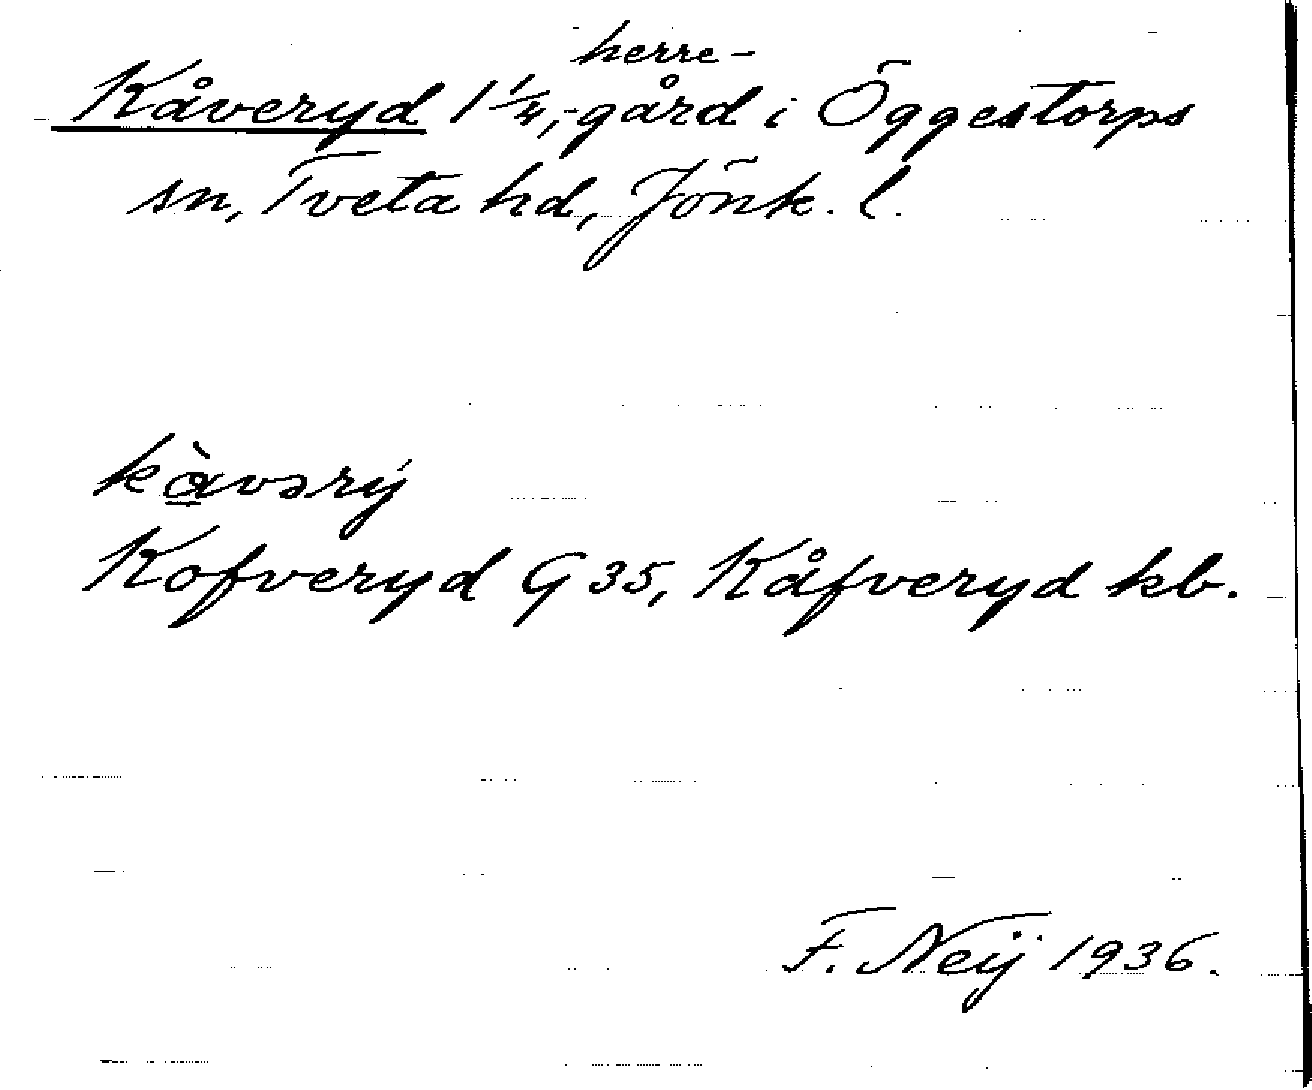 herre-
Kåveryd 1 1/4, -gård i Öggestorps
sn, Tveta hd, Jönk. l.
kàvərý
Kofveryd G 35, Kåfveryd kb.
F. Neij 1936.